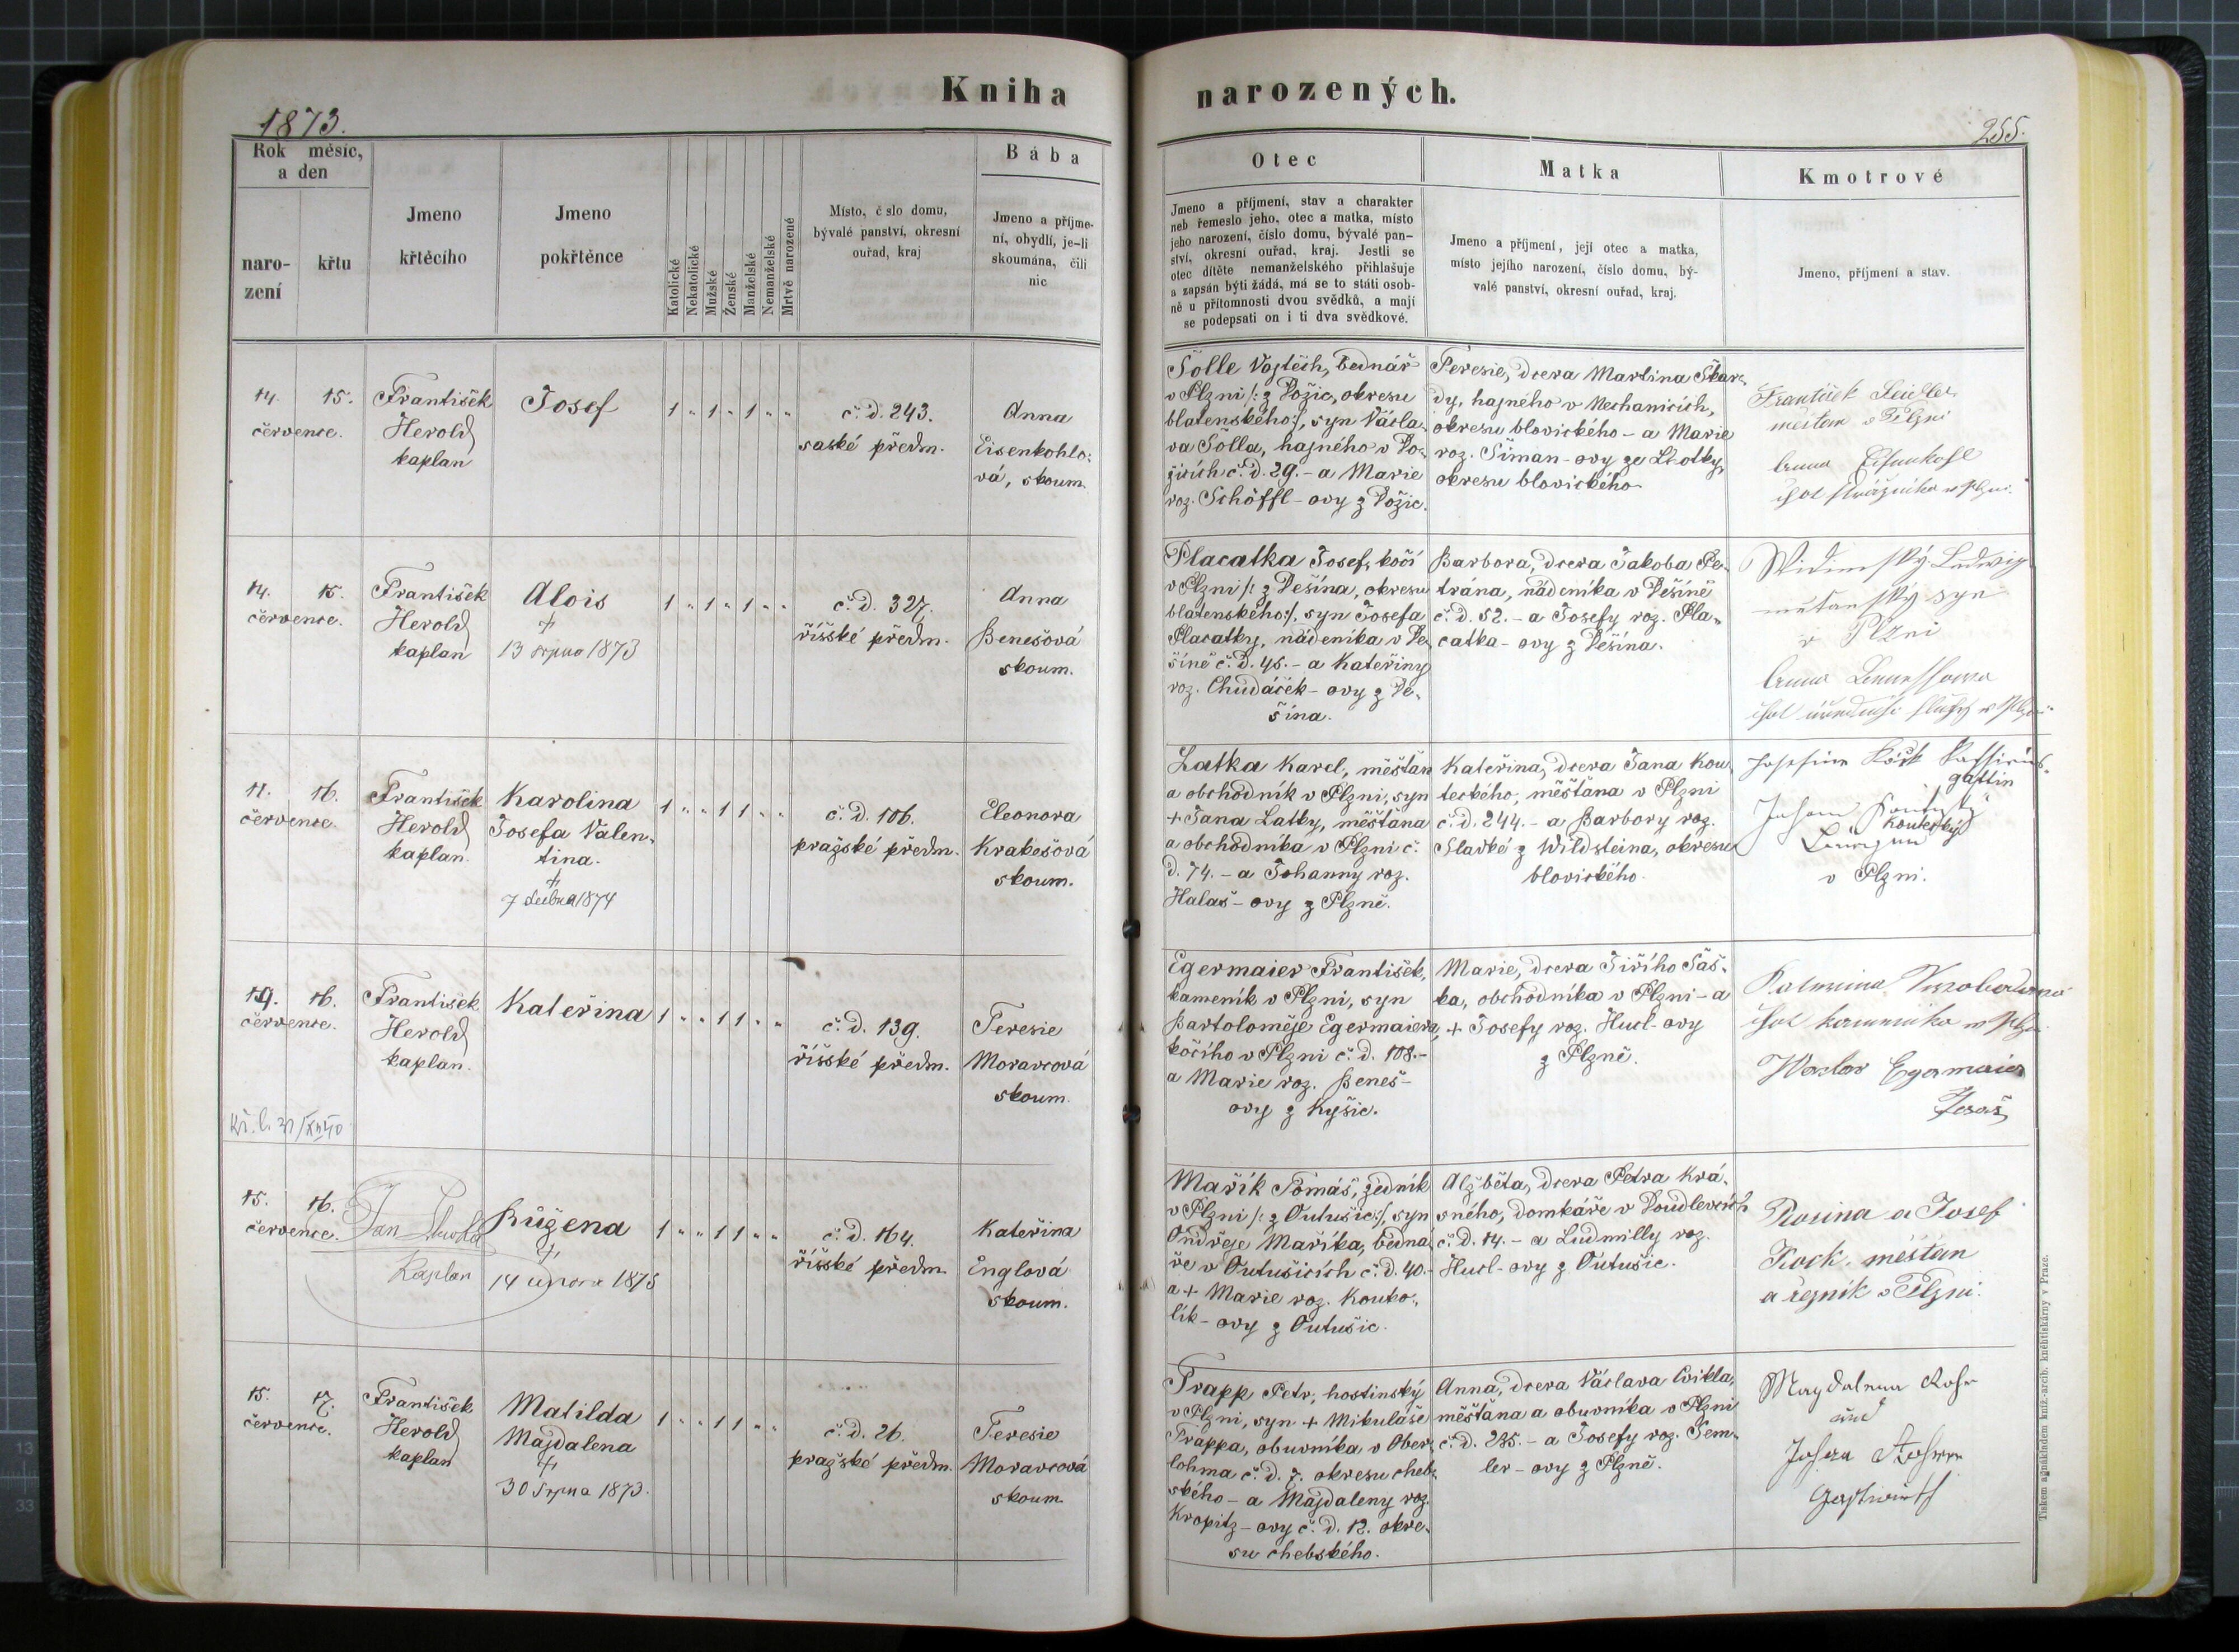 Kniha narozených.
1873.
255.
Rok měsíc,
a den
naro-
zení
křtu
Jmeno
křtěcího
Jmeno
pokřtěnce
Katolické
Nekatolické
Mužské
Ženské
Manželské
Nemanželské
Mrtvě narozené
Místo, č slo domu,
bývalé panství, okresní
ouřad, kraj
Bába
Jmeno a příjme-
ní, obydlí, je-li
skoumána, čili
nic
Otec
Jmeno a příjmení, stav a charakter
neb řemeslo jeho, otec a matka, místo
jeho narození, číslo domu, bývalé pan-
ství, okresní ouřad, kraj. Jestli se
otec dítěte nemanželského přihlašuje
a zapsán býti žádá, má se to státi osob-
ně u přítomnosti dvou svědků, a mají
se podepsati on i ti dva svědkové.
Matka
Jmeno a příjmení, její otec a matka,
místo jejího narození, číslo domu, bý-
valé panství, okresní ouřad, kraj.
Kmotrové
Jmeno, příjmení a stav.
14. 15.
července.
František
Herold
kaplan
Josef
1 " 1 " 1 " "
č. d. 243.
saské předm.
Anna
Eisenkohlo-
vá, skoum.
Šolle Vojtěch, bednář
v Plzni /: z Požic, okresu
blatenského :/, syn Václa-
va Šolla, hajného v Po-
žicích č. d. 29. - a Marie
roz. Schöffl - ovy z Požic.
Teresie, dcera Martina Škar-
dy, hajného v Mechanicích,
okresu blovického - a Marie
roz. Šiman - ovy ze Lhotky,
okresu blovického
František
měšťan v Plzni
Anna Eisenkohl
14. 15.
července.
František
Herold
kaplan
Alois
+
13 srpna 1873
1 " 1 " 1 " "
č. d. 327.
říšské předm.
Anna
Benešová
skoum.
Placatka Josef, kočí
v Plzni /: z Věšína, okresu
blatenského :/, syn Josefa
Placatky, nádeníka v Vě-
šíně č. d. 45. - a Kateřiny
roz. Chudáček - ovy z Vě-
šína.
Barbora, dcera Jakoba Pe-
trána, nádeníka v Věšíně
č. d. 52. - a Josefy roz. Pla-
catka - ovy z Věšína.
Ludwig
měšťanský syn
v Plzni
Anna
11. 16.
července.
František
Herold
kaplan.
Karolina
Josefa Valen-
tina.
+
7 dubna 1874
1 " " 1 1 " "
č. d. 106.
pražské předm.
Eleonora
Krakešová
skoum.
Latka Karel, měšťan
a obchodník v Plzni, syn
+ Jana Latky, měšťana
a obchodníka v Plzni č.
d. 74. - a Johanny roz.
Halas - ovy z Plzně.
Kateřina, dcera Jana Kou-
teckého, měšťana v Plzni
č. d. 244. - a Barbory roz.
Slavké z Wildsteina, okresu
blovického.
Josefine
gattin
Johann
Koutecký
v Plzni.
14. 16.
července.
František
Herold
kaplan.
Kateřina
1 " " 1 1 " "
č. d. 139.
říšské předm.
Teresie
Moravcová
skoum.
Egermaier František,
kameník v Plzni, syn
Bartoloměje Egermaiera,
kočího v Plzni č. d. 108. -
a Marie roz. Beneš -
ovy z Kyšic.
Marie, dcera Jiřího Šaš-
ka, obchodníka v Plzni - a
+ Josefy roz. Hucl - ovy
z Plzně.
Egermaier
15. 16.
července.
Jan
Kaplan
Růžena
+
14 února 1875
1 " " 1 1 " "
č. d. 164.
říšské předm.
Kateřina
Englová
skoum.
Mařík Tomáš, zedník
v Plzni /: z Outušic :/, syn
Ondřeje Maříka, bedná-
ře v Outušicích č. d. 40. -
a + Marie roz. Kouko-
lík - ovy z Outušic.
Alžběta, dcera Petra Krá-
sného, domkáře v Doudlevcích
č. d. 14. - a Ludmilly roz.
Hucl - ovy z Outušic.
Rosina a Josef
Kock, měšťan
a řezník v Plzni.
15. 17.
července.
František
Herold
kaplan
Matilda
Majdalena
+
30 srpna 1873.
1 " " 1 1 " "
č. d. 26.
pražské předm.
Teresie
Moravcová
skoum.
Trapp Petr, hostinský
v Plzni, syn + Mikuláše
Trappa, obuvníka v Ober-
lohma č. d. 7. okresu cheb-
ského - a Majdaleny roz.
Kropitz - ovy č. d. 12. okre-
su chebského.
Anna, dcera Václava Cvikla,
měšťana a obuvníka v Plzni
č. d. 235. - a Josefy roz. Tem-
ler - ovy z Plzně.
Magdalena
und
Gastwirth
Tiskem a nákladem kníž.-arcib. knihtiskárny v Praze.